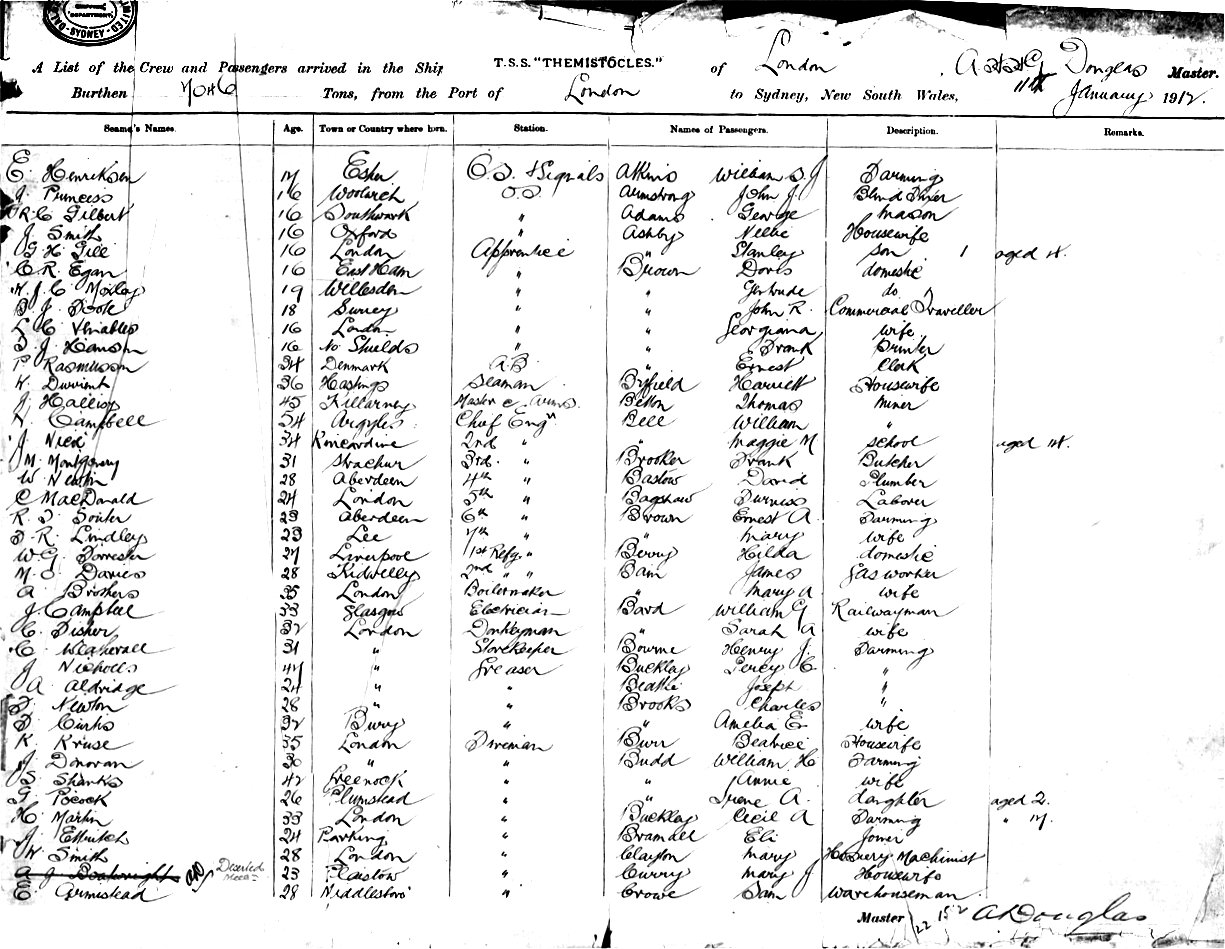 SHIPPING DEPARTMENT. LIMITED SYDNEY
A List of the Crew and Passengers arrived in the Ship T.S.S. "THEMISTOCLES." of London Douglas Master.
Burthen 7046 Tons, from the Port of London to Sydney, New South Wales, 11th January 1912.
Seamen's Names. Age. Town or Country where born. Station. Names of Passengers. Description. Remarks.
E. Henriksen 17 Esher O.S. & Signals Atkins William S J Farming
J. Princess 16 Woolwich O.S. Armstrong John J. Blind Fixer
R. C Gilbert 16 Southwark " Adams George Mason
J. Smith 16 Oxford " Ashby Nellie Housewife
G. H. Gill 16 London Apprentice " Stanley son 1 aged 14.
C. R. Egan 16 East Ham " Brown Doris domestic
H. J. C Moxley 19 Willesden " " Gertrude do
B. J. Poole 18 Surrey " " John R. Commercial Traveller
L. C Venables 16 London " " Georgiana, wife
S. J. Hanson 16 No Shields " " Frank Printer
P. Rasmussen 34 Denmark A.B " Ernest Clerk
H. Durrient 36 Hastings Seaman Byfield Harriett Housewife
J. 45 Killarney Master @ Arms. Betton Thomas Miner
K. Campbell 54 Argyles Chief Engr Bell William "
J. Nicol 34 Kincardine 2nd " " Maggie M school aged 14.
M. Montgomery 31 Strachur 3rd. " Brooker Frank Butcher
W. Newton 28 Aberdeen 4th " Bastow David Plumber
C MacDonald 24 London 5th " Bagshaw Furniss Laborer
R. S. Souter 23 Aberdeen 6th " Brown Ernest A. Farming
F. R. Lindley 23 Lee 7th " " Mary wife
W. G. Forrester 27 Liverpool 1st Refg. " Berry Hilda domestic
M. O. Davies 28 Kidwelly 2nd " " Bain James Gas worker
A. Brothers 35 London Boilermaker " Mary A wife
J. Campbell 33 Glasgow Electrician Bard William G Railwayman
C. Fisher 32 London Donkeyman " Sarah A wife
C. Weatherall 31 " Storekeeper Bourne Henry J. Farming
J. Nicholls 47 " Greaser Buckley Percy C. "
A. Aldridge 24 " " Beattie Joseph "
F. Newton 28 " " Brooks Charles "
F. Curtis 32 Bury " " Amelia E. wife
K. Kruse 35 London Fireman Burr Beatrice Housewife
J. Donovan 30 " " Budd William H. Farming
S. Shanks 42 Greenock " " Annie wife
G. Pocock 26 Plumstead " " Irene A. daughter aged 2.
H. Martin 33 London " Buckley Cecil A Farming " 17.
J. 24 Barking " Bramall Eli Joiner
W. Smith 28 London " Clayton Mary Hosiery Machinist
A. J Boatwright Deserted 23 Plaistow " Curry Mary J Housewife
C. Armistead 28 Middlesboro' " Crowe Sam Warehouseman.
Master A Douglas